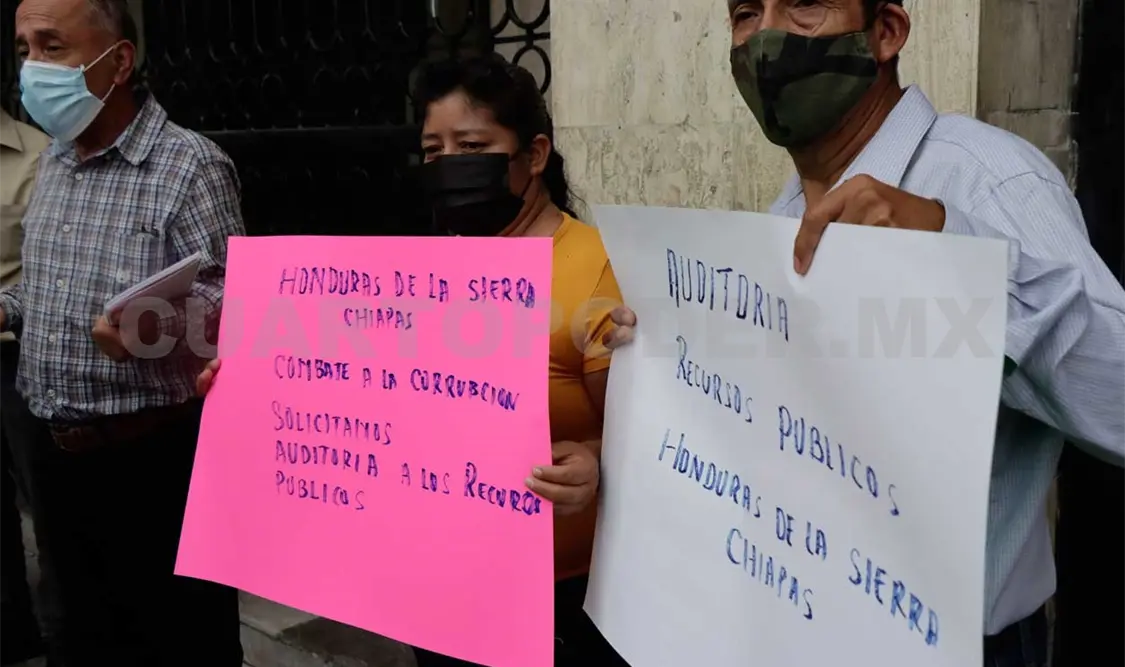 HONDURAS DE LA SIERRA
CHIAPAS
COMBATE A LA CORRUBCION
SOLICITAMOS
AUDITORIA A LOS RECURSOS
PUBLICOS
AUDITORIA
RECURSOS PUBLICOS
HONDURAS DE LA SIERRA
CHIAPAS
CUARTOPODER.MX